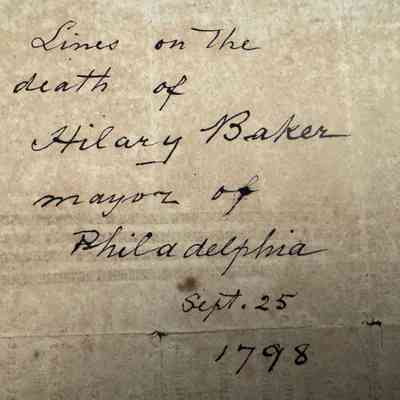 Lines on The
death of
Hilary Baker
mayor of
Philadelphia
Sept. 25
1798